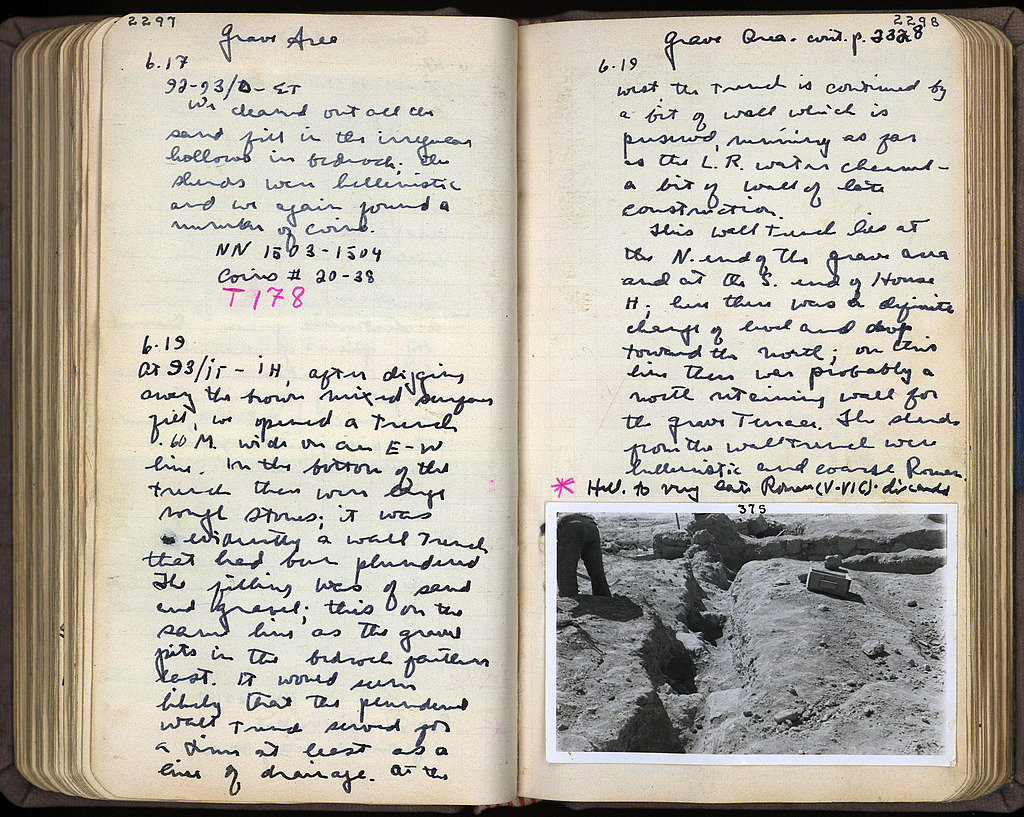 2297
Grave Area
6.17
92-93/Δ-ΣΤ
We cleaned out all the
sand fill in the irregular
hollows in bedrock; the
sherds were hellenistic
and we again found a
number of coins.
NN 1503-1504
Coins # 20-38
T 178
6.19
At 93/ΙΓ-ΙΗ, after digging
away the brown mixed surface
fill, we opened a trench
.60 M. wide on an E-W
line. In the bottom of the
trench there were large
rough stones; it was
evidently a wall trench
that had been plundered
The filling was of sand
and gravel; this on the
same line as the gravel
pits in the bedrock farther
east. It would seem
likely that the plundered
wall trench served for
a time at least as a
line of drainage. At the
2298
Grave Area. cont. p. 2328
6.19
west the trench is continued by
a bit of wall which is
preserved, running as far
as the L.R. water channel -
a bit of wall of late
construction.
This wall trench lies at
the N. end of the grave area
and at the S. end of House
H; here there was a definite
change of level and drop
toward the north; on this
line there was probably a
north retaining wall for
the grave terrace. The sherds
from the wall trench were
hellenistic and coarse Roman
* Hell. to very late Roman (V-VI C). discards
375